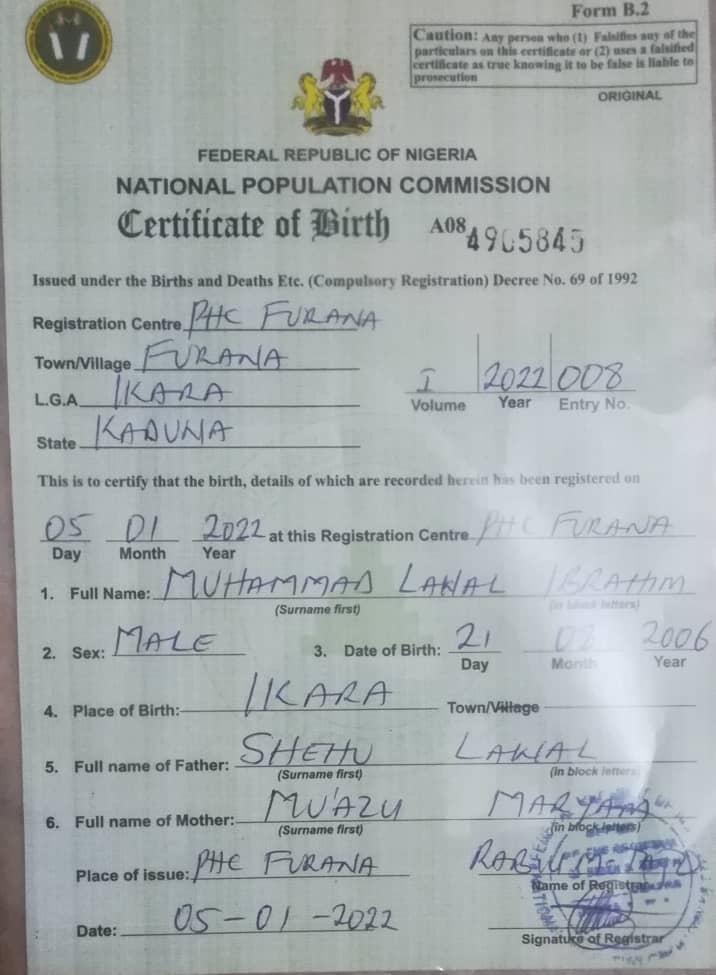 Form B.2
Caution: Any person who (1) Falsifies any of the
particulars on this certificate or (2) uses a falsified
certificate as true knowing it to be false is liable to
prosecution
ORIGINAL
FEDERAL REPUBLIC OF NIGERIA
NATIONAL POPULATION COMMISSION
Certificate of Birth A08 4905845
Issued under the Births and Deaths Etc. (Compulsory Registration) Decree No. 69 of 1992
Registration Centre PHC FURANA
Town/Village FURANA
L.G.A IKARA
I 2022 008
Volume Year Entry No.
State KADUNA
This is to certify that the birth, details of which are recorded herein has been registered on
05 01 2022 at this Registration Centre PHC FURANA
Day Month Year
1. Full Name: MUHAMMAD LAWAL IBRAHIM
(Surname first) (in block letters)
2. Sex: MALE 3. Date of Birth: 21 2006
Day Month Year
4. Place of Birth: IKARA Town/Village
5. Full name of Father: SHEHU LAWAL
(Surname first) (in block letters)
6. Full name of Mother: MU'AZU MARYAM
(Surname first) (in block letters)
Place of issue: PHC FURANA
Name of Registrar
Date: 05-01-2022
Signature of Registrar